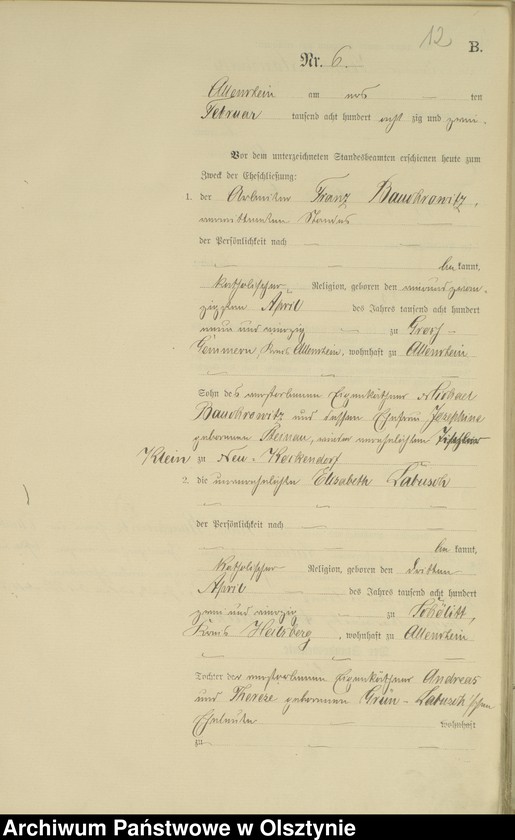 12
B.
Nr. 6.
Allenstein am ten
Februar tausend acht hundert acht zig und zwei.
Vor dem unterzeichneten Standesbeamten erschienen heute zum
Zweck der Eheschließung:
1. der Arbeiter Franz
verwittweten Standes
der Persönlichkeit nach
be kannt,
katholischer Religion, geboren den neunundzwan-
zigsten April des Jahres tausend acht hundert
neun und vierzig zu Groß-
Gemmern, Kreis Allenstein, wohnhaft zu Allenstein
Sohn des verstorbenen Eigenkäthner Michael
und dessen Ehefrau Josephine
geborenen wieder verehelichten
Klein zu Neu-
2. die unverehelichte Elisabeth Labusch
der Persönlichkeit nach
be kannt,
katholischer Religion, geboren den dritten
April des Jahres tausend acht hundert
zwei und vierzig zu
Kreis Heilsberg, wohnhaft zu Allenstein
Tochter der verstorbenen Eigenkäthner Andreas
und Therese geborenen Grün-Labusch'schen
Eheleute wohnhaft
zu
Archiwum Państwowe w Olsztynie